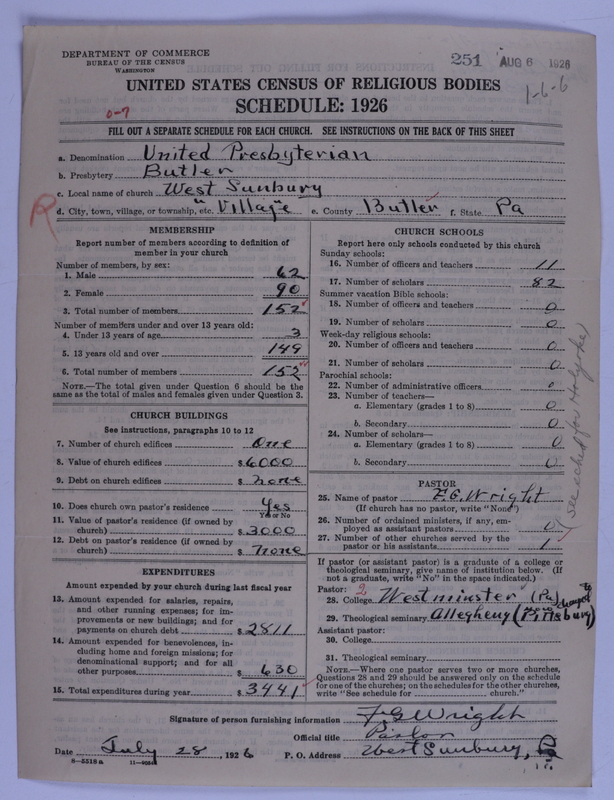 DEPARTMENT OF COMMERCE
BUREAU OF THE CENSUS
WASHINGTON
251 AUG 6 1926
1-6-6
UNITED STATES CENSUS OF RELIGIOUS BODIES
SCHEDULE: 1926
0-7
FILL OUT A SEPARATE SCHEDULE FOR EACH CHURCH. SEE INSTRUCTIONS ON THE BACK OF THIS SHEET
a. Denomination United Presbyterian
b. Presbytery Butler
c. Local name of church West Sunbury
R
d. City, town, village, or township, etc. "Village" e. County Butler f. State Pa
MEMBERSHIP
Report number of members according to definition of
member in your church
Number of members, by sex:
1. Male 62
2. Female 90
3. Total number of members 152
Number of members under and over 13 years old:
4. Under 13 years of age 3
5. 13 years old and over 149
6. Total number of members 152
NOTE.—The total given under Question 6 should be the
same as the total of males and females given under Question 3.
CHURCH BUILDINGS
See instructions, paragraphs 10 to 12
7. Number of church edifices One
8. Value of church edifices $ 6000
9. Debt on church edifices $ none
10. Does church own pastor's residence Yes
Yes or No
11. Value of pastor's residence (if owned by
church) $ 3000
12. Debt on pastor's residence (if owned by
church) $ none
EXPENDITURES
Amount expended by your church during last fiscal year
13. Amount expended for salaries, repairs,
and other running expenses; for im-
provements or new buildings; and for
payments on church debt $ 2811
14. Amount expended for benevolences, in-
cluding home and foreign missions; for
denominational support; and for all
other purposes $ 630
15. Total expenditures during year $ 3441
CHURCH SCHOOLS
Report here only schools conducted by this church
Sunday schools:
16. Number of officers and teachers 11
17. Number of scholars 82
Summer vacation Bible schools:
18. Number of officers and teachers 0
19. Number of scholars 0
Week-day religious schools:
20. Number of officers and teachers 0
21. Number of scholars 0
Parochial schools:
22. Number of administrative officers 0
23. Number of teachers—
a. Elementary (grades 1 to 8) 0
b. Secondary 0
24. Number of scholars—
a. Elementary (grades 1 to 8) 0
b. Secondary 0
PASTOR
25. Name of pastor F.G. Wright
(If church has no pastor, write "None")
26. Number of ordained ministers, if any, em-
ployed as assistant pastors 0
27. Number of other churches served by the
pastor or his assistants 1
If pastor (or assistant pastor) is a graduate of a college or
theological seminary, give name of institution below. (If
not a graduate, write "No" in the space indicated.)
Pastor: 2
28. College Westminster (Pa)
29. Theological seminary Allegheny (now changed to Pittsburg)
Assistant pastor:
30. College
31. Theological seminary
NOTE.—Where one pastor serves two or more churches,
Questions 28 and 29 should be answered only on the schedule
for one of the churches; on the schedules for the other churches,
write "See schedule for church."
Signature of person furnishing information F G Wright
Official title Pastor
Date July 28, 1926 P. O. Address West Sunbury, Pa
8—5518 a